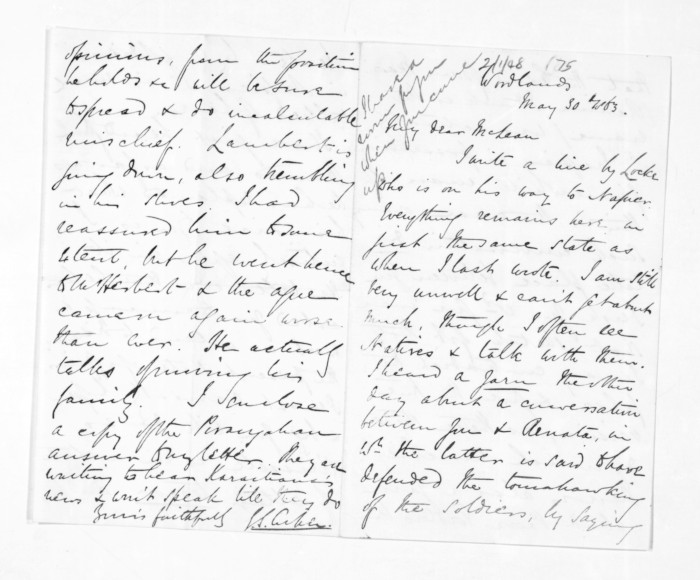 opinions, from the position
he holds & will be sure
to spread & do incalculable
mischief. Lambert is
going down, also trembling
in his shoes. I had
reassured him to some
extent, but he went hence
to & the ague
came on again worse
than ever. He actually
talks of moving his
family. I enclose
a copy of the Porangahau
answer to my letter... They are
waiting to hear Karaitiana's
news & won't speak till they do
Yours faithfully G.S. Cooper.
2/1/48 175
Woodlands
May 30th 1863.
My dear McLean
I write a line by Locke
who is on his way to Napier.
Everything remains here in
just the same state as
when I last wrote. I am still
very unwell & can't get about
much, though I often see
Natives & talk with them.
I heard a yarn the other
day about a conversation
between you & Renata, in
wh. the latter is said to have
defended the tomahawking
of the soldiers, by saying
I have a
for you
when you come
up